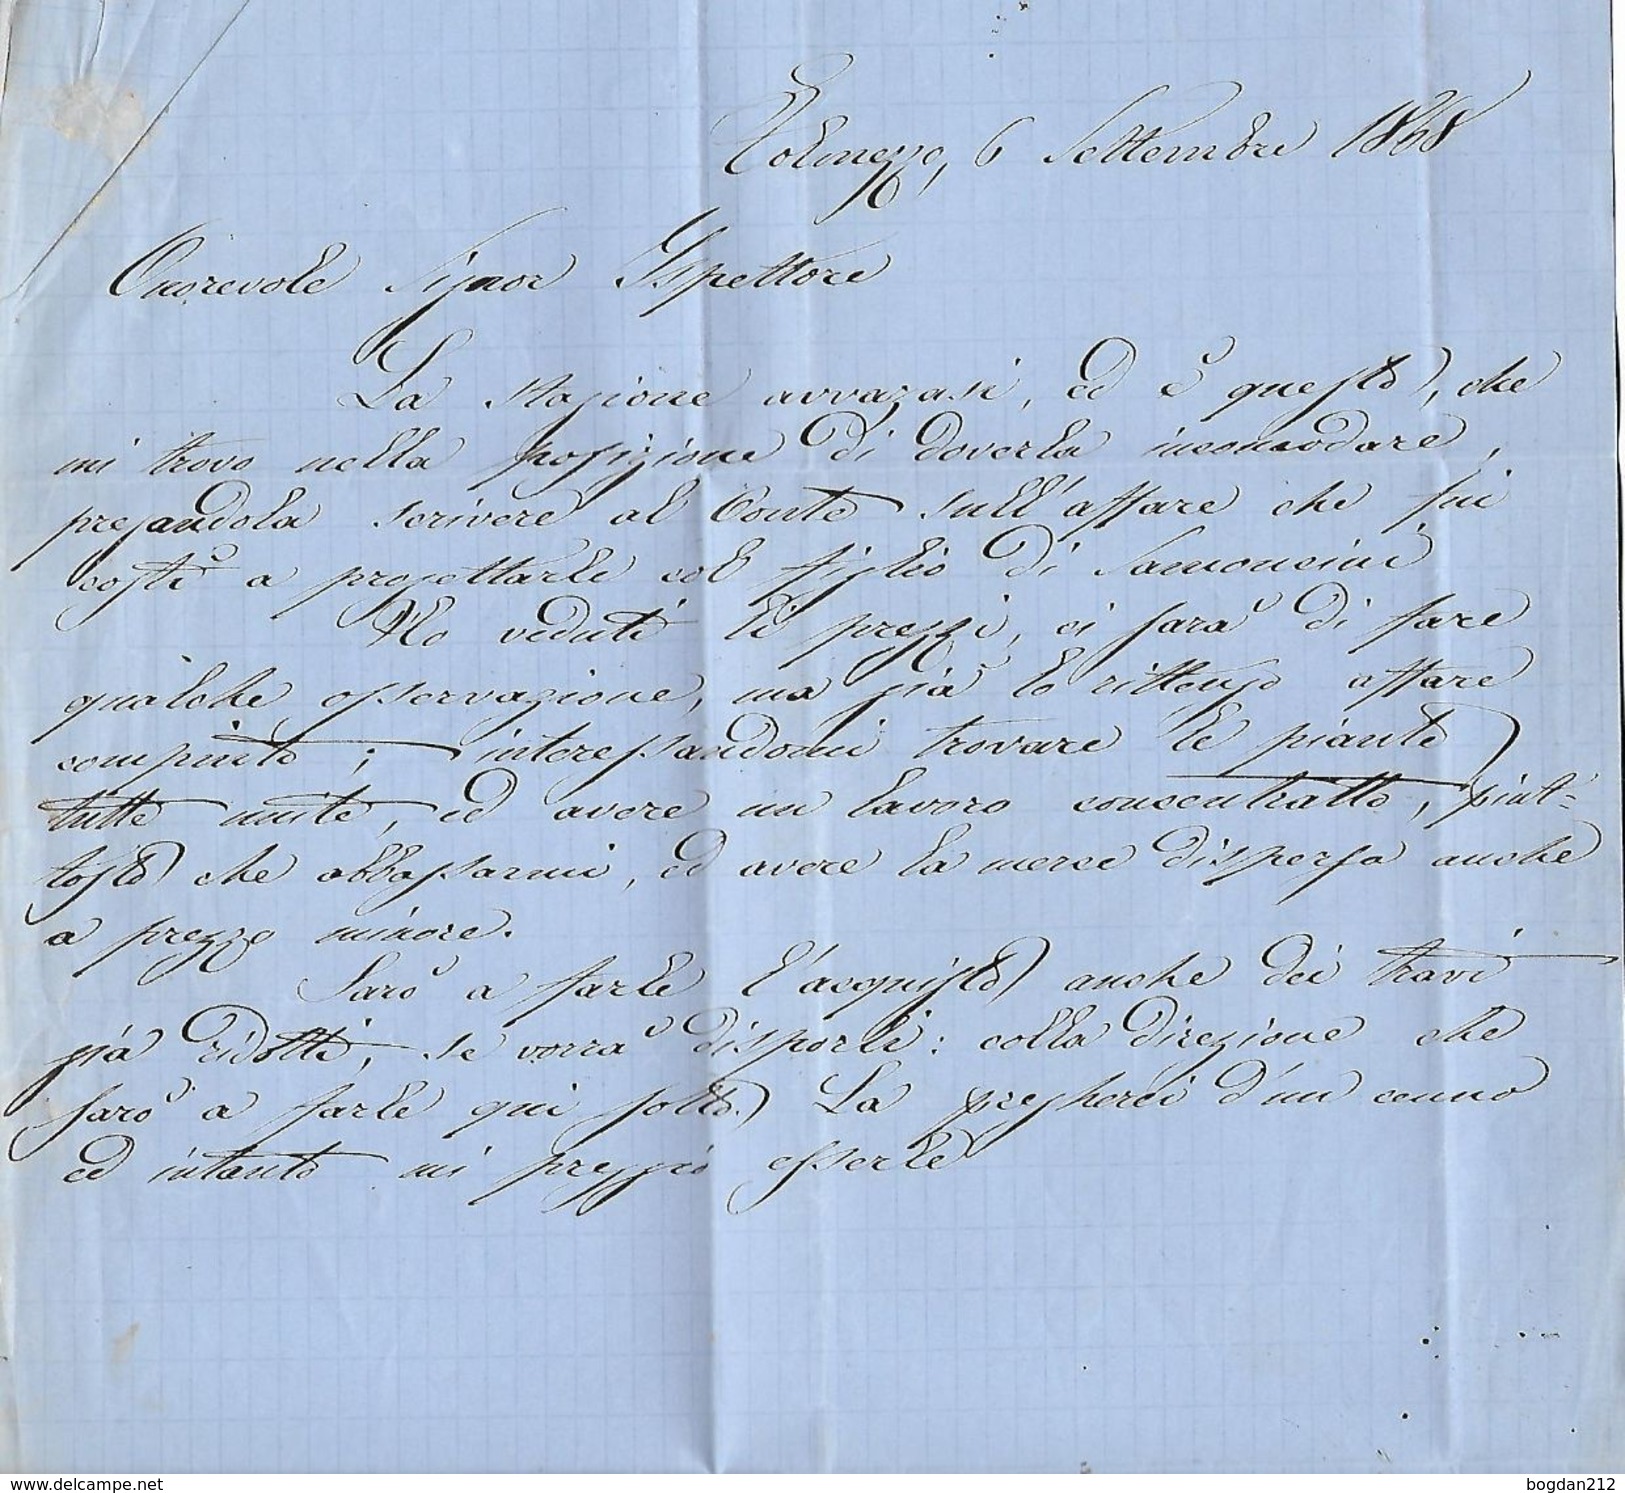 Tolmezzo, 6 Settembre 1868
Onorevole Signor Ispettore
La stagione avvazasi, ed è questo, che
mi trovo nella posizione di doverla incomodare,
pregandola scrivere al Conte sull'affare che fui
costì a progettarle col figlio di
Ho veduti li prezzi, ci sarà di fare
qualche osservazione, ma già lo rittengo affare
compinto; interessandomi trovare le piante
tutte unite, ed avere un lavoro concentratto, piut=
tosto che abbassarmi, ed avere la merce dispersa anche
a prezzo minore.
Sarò a farle l'acquisto anche dei travi
già ridotti, se vorrà disporli: colla direzione che
sarò a farle qui sotto. La pregherei d'un cenno
ed intanto mi preggio esserle
bogdan212